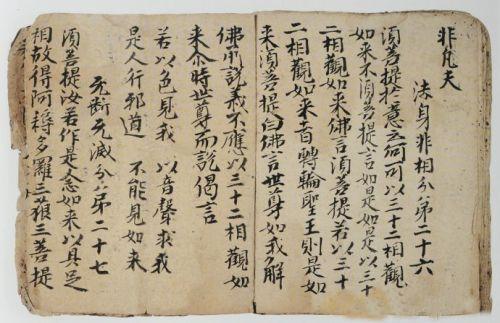 非凡夫
法身非相分第二十六
須菩提於意云何可以三十二相觀
如来不須菩提言如是如是以三十
二相觀如来佛言須菩提若以三十
二相觀如来者轉輪聖王則是如
来須菩提白佛言世尊如我解
佛所說義不應以三十二相觀如
来尒時世尊而說偈言
若以色見我 以音聲求我
是人行邪道 不能見如来
无断无滅分第二十七
須菩提汝若作是念如来以具足
相故得阿耨多羅三藐三菩提